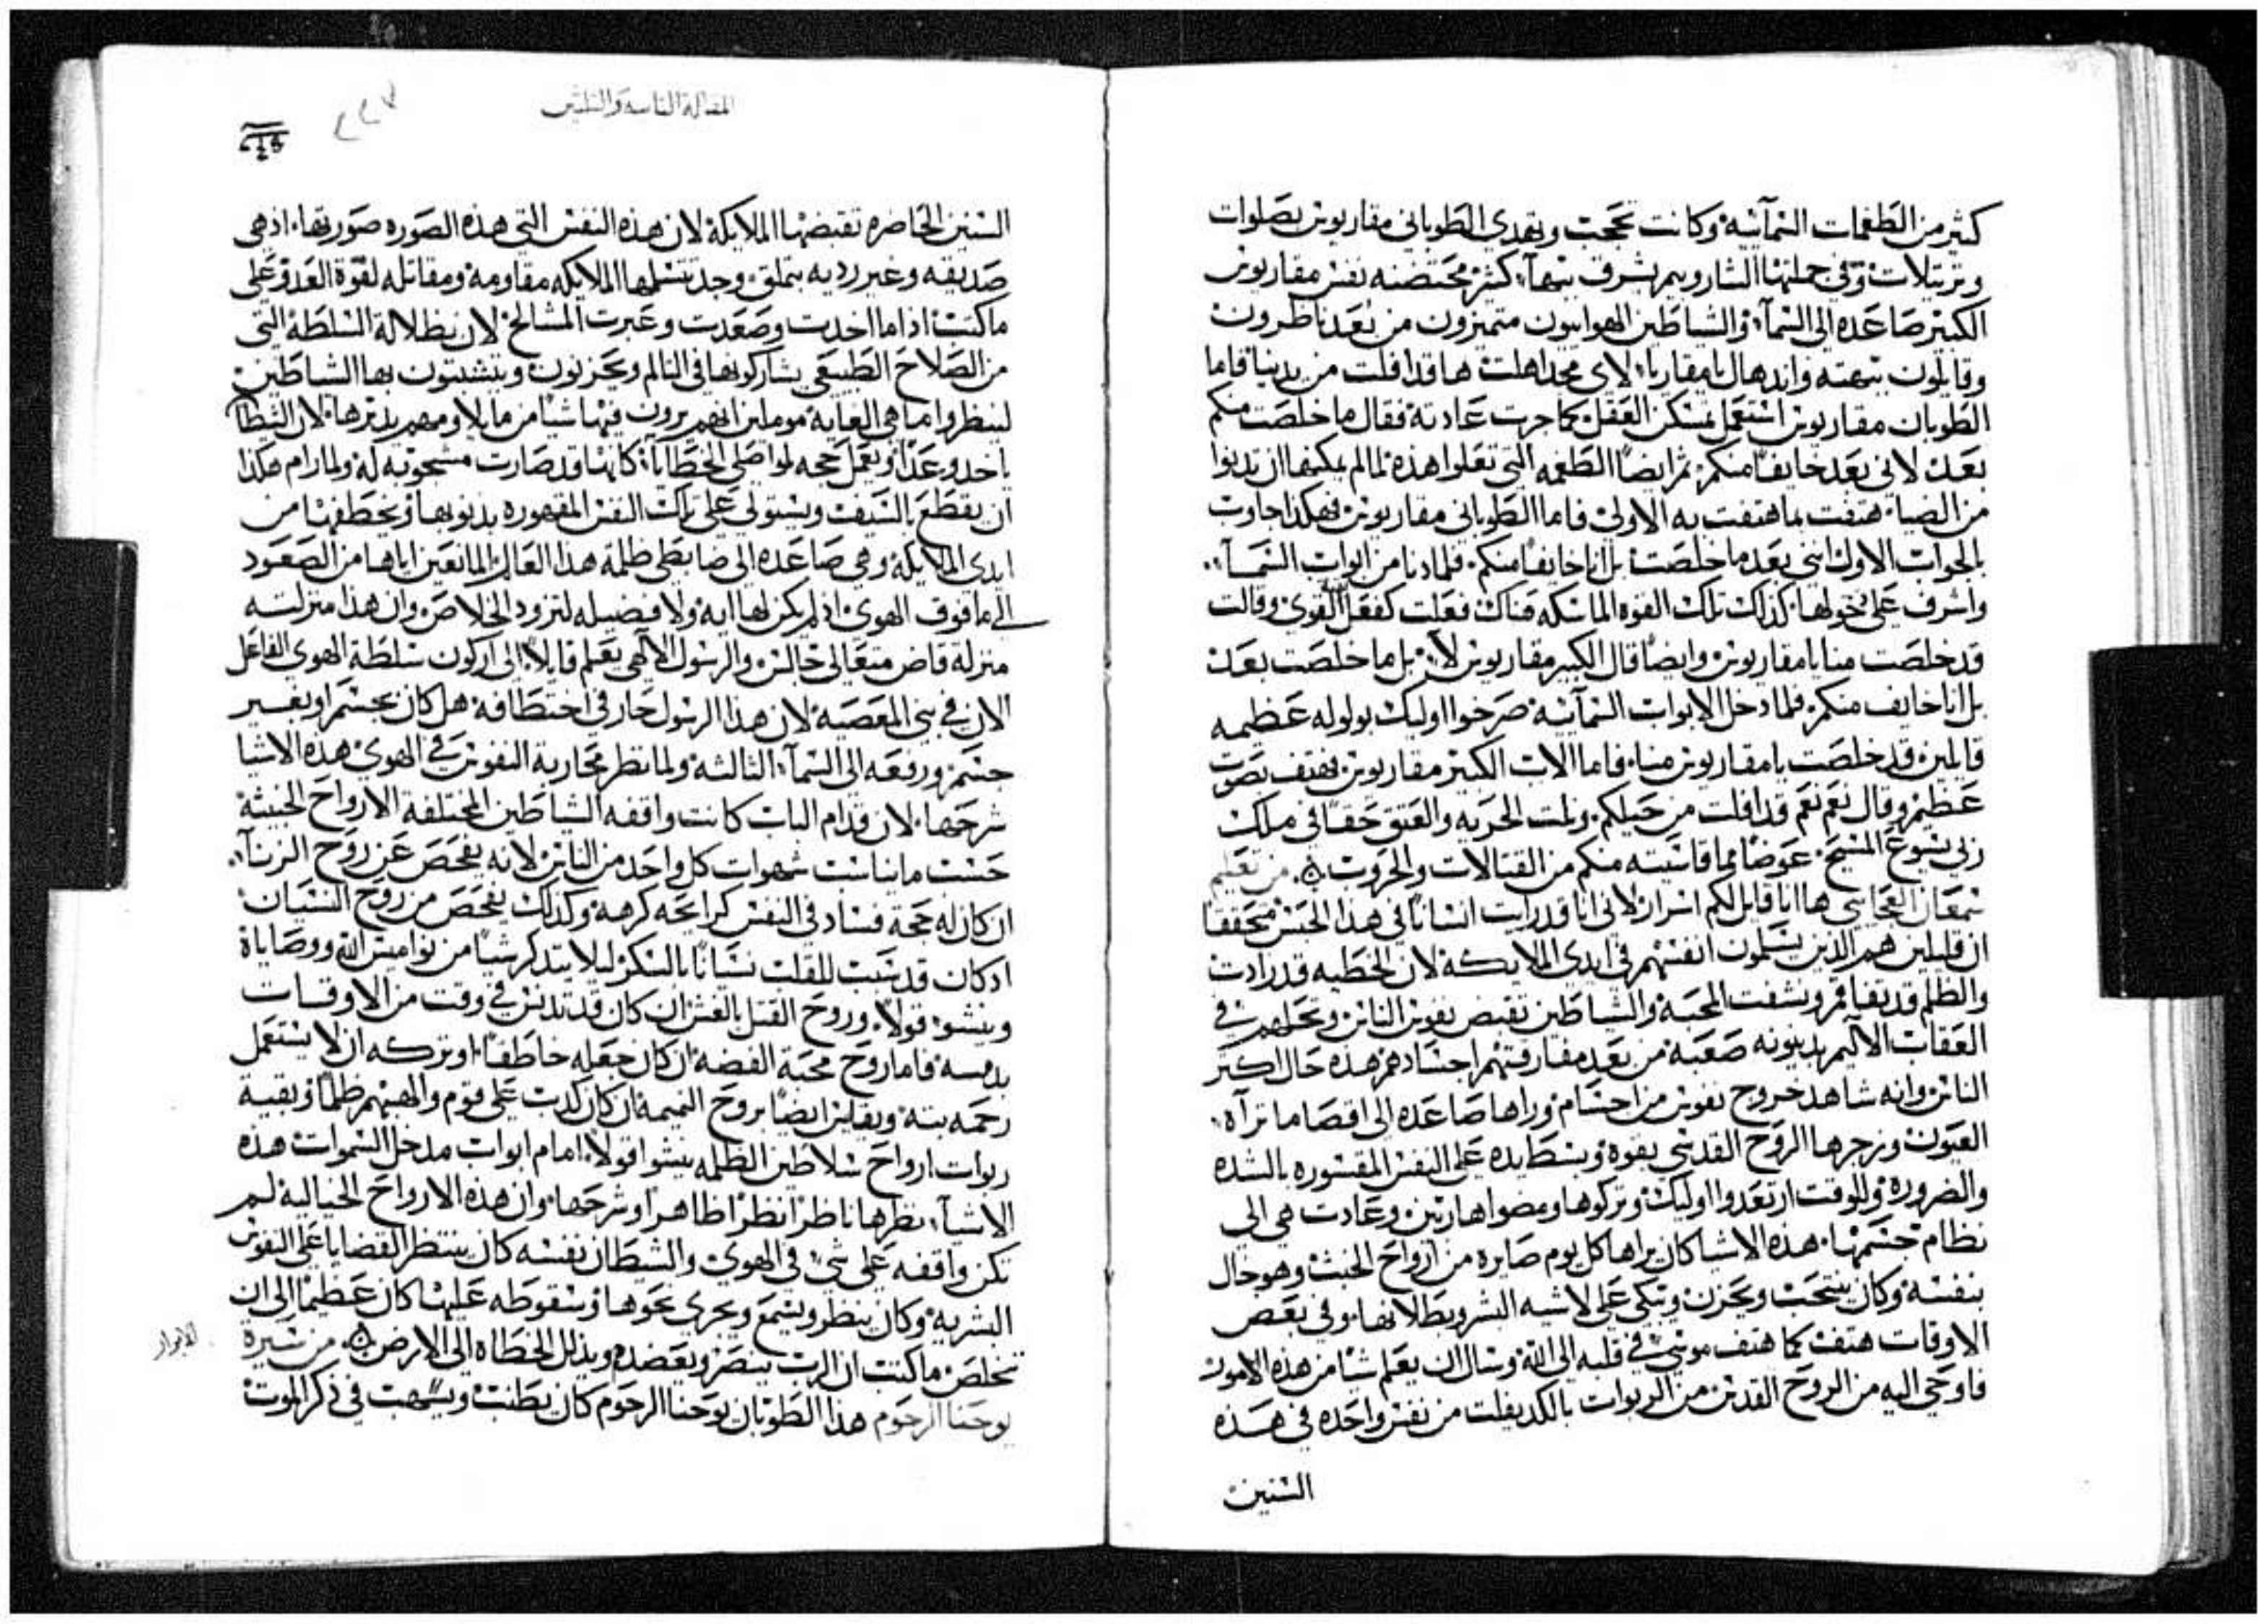 كثير من الطغمات السمآئيه وكانت تحجت وتهدي الطوباني مقاريوس بصلوات
وترتيلات وفي جملتها الشاروبيم
الكبير صاعده الى السمآ والشياطين الهوايون متميزون من بُعد ناظرون
وقايلون
الطوبان مقاريوس استعمل تمسكن العقل كما جرت عادته فقال ما خلصت منكم
بعد لاني بعد خايفًا منكم ثم ايضًا الطغمه التي تعلوا هذه لما لم يمكنها ان يدنوا
هتفت بما هتفت به الاولى فاما الطوباني مقاريوس فهكذا جاوب
بالجواب الاول انني بعد ما خلصت بل انا خايفًا منكم فلما دنا من ابواب السمآ
واشرف على دخولها كذلك تلك القوه الماسكه هناك فعلت كفعل القوي وقالت
قد خلصت منا يا مقاريوس وايضًا قال الكبير مقاريوس لا بل ما خلصت بعد
بل انا خايف منكم فلما دخل الابواب السمآئيه صرخوا اوليك بولوله عظيمه
قايلين قد خلصت يا مقاريوس منا فاما الاب الكبير مقاريوس فهتف بصوت
عظيم وقال نعم نعم قد افلت من حيلكم ونلت الحريه والعتق حقًا في ملك
ربي يسوع المسيح عوضًا مما قاسيته منكم من القتالات والحروب من تعليم
سمعان العجايبي ها انا قايل لكم اسرار لاني انا قد رايت انسانًا في هذا الحبس محققًا
ان قليلين هم الذين يسلمون انفسهم في ايدي الملايكه لان الخطيه قد زادت
والظلم قد تفاقم ونشفت المحبه والشياطين تقبض نفوس الناس وتحملهم في
العقاب الاليم بدينونه صعبه من بعد مفارقتهم اجسادهم هذه حال اكتر
الناس وانه شاهد خروج نفوس من اجسام وراها صاعده الى اقصا ما تراه
العيون وزجرها الروح القدسي بقوه وبسط يده على النفس المقسوره بالشده
والضروره وللوقت ارتعدوا اوليك وتركوها ومضوا هاربين وعادت هي الى
نظام جسمها هذه الاشيا كان يراها كل يوم صايره من ارواح الخبث وهو حال
بنفسه وكان ينتحب ويحزن ويبكي على لاشيه البشر وبطلانها وفي بعض
الاوقات هتف كما هتف موسي في قلبه الى الله وسال ان يعلم شيًا من هذه الامور
فاوحي اليه من الروح القدس من الربوات بالكد يفلت من نفس واحده في هذه
السنين
المقاله التاسعه والثلثين
السنين الحاضره تقبضها الملايكه لان هذه النفس التي هذه الصوره صورتها اذ هي
صديقه وغير رديه بتملق وجد تتسلمها الملايكه مقاومه ومقاتله لقوة العدو على
ما كتب اذا ما اخدت وصعدت وعبرت المسالح لان بظلالة السلطه التي
من الصلاح الطبيعي يشاركونها في التالم ويحزنون ويتشبتون بها الشياطين
لينظروا ما هي الغايه موملين انهم يرون فيها شيًا من ما يلاومهم لان الشيطان
كانها قد صارت مسحوبه له ولما رام هكذا
ان يقطع بالسيف ويستولي على تلك النفس المقهوره بدنوبها ويخطفها من
ايدي الملايكه وهي صاعده الى ضابطي ظلمة هذا العالم المانعين اياها من الصعود
الى ما فوق الهوى اذ لم يكن لها ايه ولا فضيله لتزود الخلاص وان هذا منزلته
منزلة قاض متعالي جالس والرسول الالهي يعلم قايلًا الى اركون سلطة الهوى الفاعل
الان في بني المعصيه لان هذا الرسول حار في اختطافه هل كان بجسم او بغير
جسم ورفعه الى السمآ الثالثه ولما نظر محاربة النفوس في الهوى هذه الاشيا
شرحها لان قدام الباب كانت واقفه الشياطين المختلفة الارواح الخبيثة
حسب ما يناسب شهوات كل واحد من الناس لانه يفحص عن روح الزنا
ان كان له حجة فساد في النفس كرايحه كرهه وكذلك يفحص من روح النسيان
اد كان قد سبب للقلب نسيانًا بالسكر ليلا يتدكر شيًا من نواميس الله ووصاياه
وينشو قولًا وروح القتل بالغش ان كان قد تدنس في وقت من الاوقات
بدمسه فاما روح محبة الفضه ان كان جعله خاطفًا او تركه ان لا يستعمل
رحمه بته ويفلس ايضًا بروح النميمه ان كان كذب على قوم والهبهم ظلمًا وبقية
ربوات ارواح سلاطين الظلمه ينشوا قولًا امام ابواب مدخل السموات هذه
الاشيآ نظرها ناظرًا نظرًا ظاهرًا وشرحها وان هذه الارواح الخياليه لم
تكن واقفه على شي في الهوى والشيطان نفسه كان ينتظر القضايا على النفوس
البشريه وكان ينظر ويسمع ويجري نحوها وسقوطه عليها كان عظيمًا الى ان
تخلص ما كتب ان الرب ينصر ويعضد ويذلل الخطاه الى الارض من سيرة
يوحنا الرحوم هذا الطوبان يوحنا الرحوم كان يطنب ويسهب في ذكر الموت